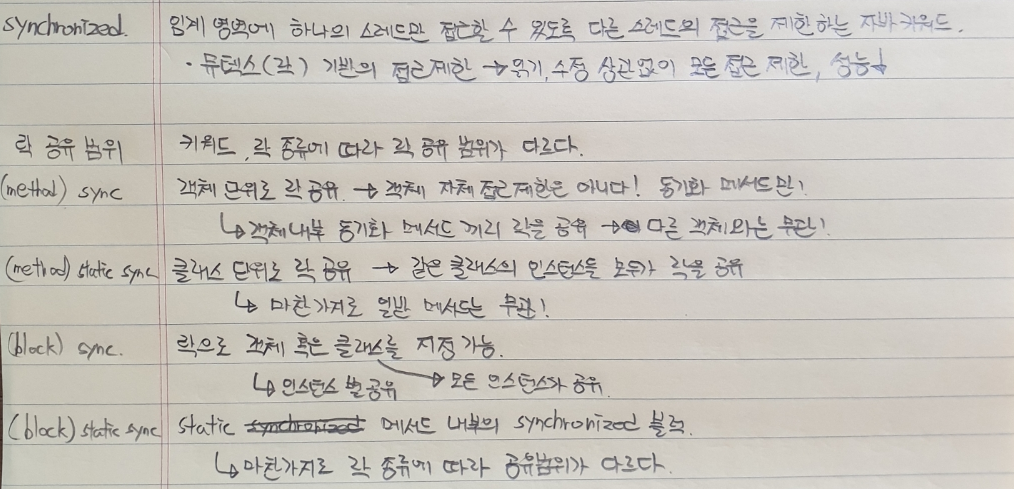 synchronized. 임계 영역에 하나의 스레드만 접근할 수 있도록 다른 스레드의 접근을 제한하는 자바 키워드.
· 뮤텍스(락) 기반의 접근제한 → 읽기, 수정 상관없이 모든 접근 제한, 성능↓
락 공유 범위 키워드, 락 종류에 따라 락 공유 범위가 다르다.
(method) sync 객체 단위로 락 공유 → 객체 자체 접근제한은 아니다! 동기화 메서드만!
↳ 객체 내부 동기화 메서드 끼리 락을 공유 → 다른 객체와는 무관!
(method) static sync 클래스 단위로 락 공유 → 같은 클래스의 인스턴스들 모두가 락을 공유
↳ 마찬가지로 일반 메서드는 무관!
(block) sync. 락으로 객체 혹은 클래스를 지정 가능.
↳ 인스턴스 별 공유 → 모든 인스턴스가 공유.
(block) static sync static synchronized 메서드 내부의 synchronized 블럭.
↳ 마찬가지로 락 종류에 따라 공유범위가 다르다.